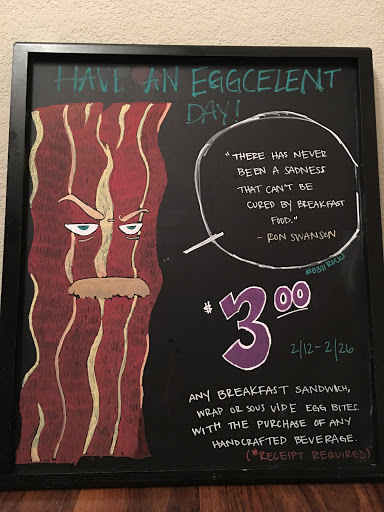 HAVE AN EGGCELENT
DAY!
"THERE HAS NEVER
BEEN A SADNESS
THAT CAN'T BE
CURED BY BREAKFAST
FOOD."
- RON SWANSON
$3.00
2/12-2/26
ANY BREAKFAST SANDWICH,
WRAP OR SOUS VIDE EGG BITES
WITH THE PURCHASE OF ANY
HANDCRAFTED BEVERAGE.
(*RECEIPT REQUIRED)